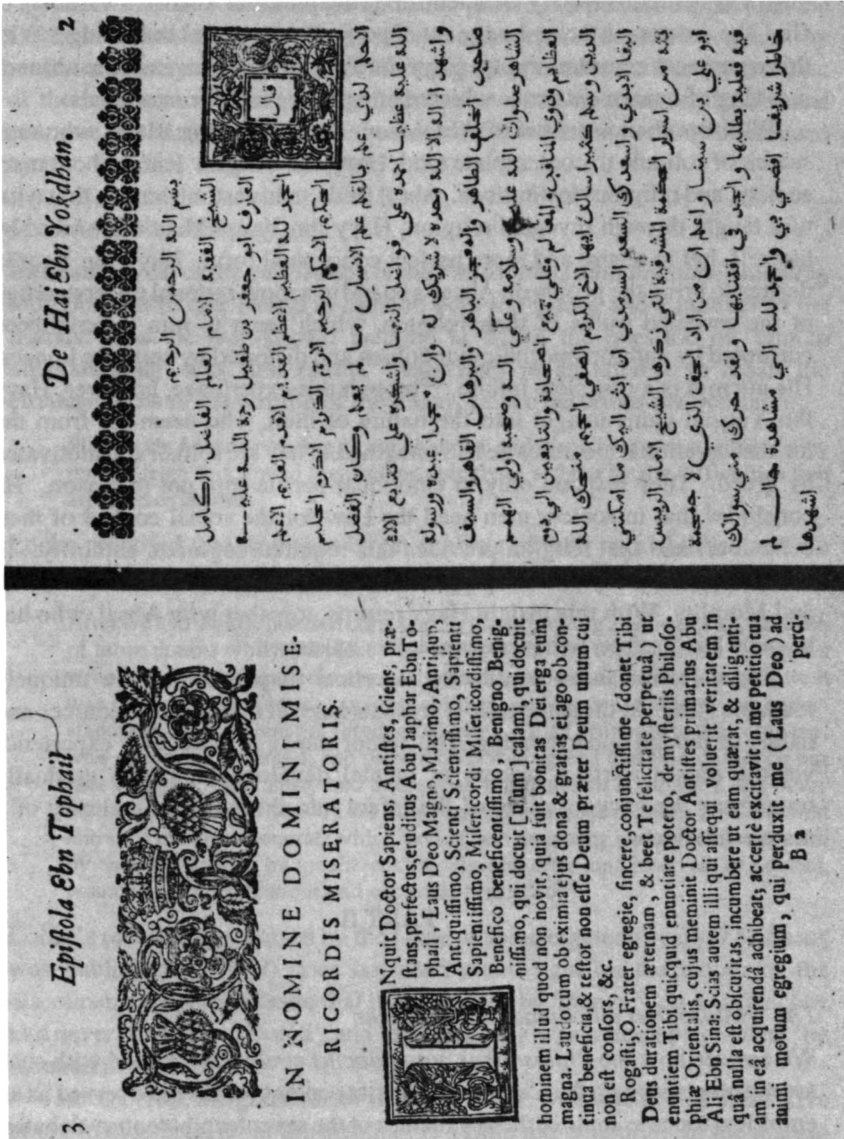 2
Epiſtola Ebn Tophail
IN NOMINE DOMINI MISE-
RICORDIS MISERATORIS.
INquit Doctor Sapiens Antiſtes, ſciens, præ-
ſtans, perfectus, eruditus Abu Jaaphar Ebn To-
phail, Laus Deo Magno, Maximo, Antiquo,
Antiquiſſimo, Scienti Scientiſſimo, Sapienti
Sapientiſſimo, Miſericordi Miſericordiſſimo,
Benefico beneficentiſſimo, Benigno Benig-
niſſimo, qui docuit [uſum] calami, qui docuit
hominem illud quod non novit, quia fuit bonitas Dei erga eum
magna. Laudo eum ob eximia ejus dona & gratias ei ago ob con-
tinua beneficia, & teſtor non eſſe Deum præter Deum unum cui
non eſt conſors, &c.
Rogaſti, O Frater egregie, ſincere, conjunctiſſime (donet Tibi
Deus durationem æternam, & beet Te felicitate perpetuâ) ut
enuntiem Tibi quicquid enuntiare potero, de myſteriis Philoſo-
phiæ Orientalis, cujus meminit Doctor Antiſtes primarius Abu
Ali Ebn Sina: Scias autem illi qui aſſequi voluerit veritatem in
quâ nulla eſt obſcuritas, incumbere ut eam quærat, & diligenti-
am in eâ acquirendâ adhibeat; ac certè excitavit in me petitio tua
animi motum egregium, qui perduxit me (Laus Deo) ad
B 2 perci-
De Hai Ebn Yokdhan. 2
بسم الله الرحمن الرحيم
قال
الشيخ الفقيه الامام العالم الفاضل الكامل
العارف ابو جعفر بن طفيل رحمة الله عليه
الحمد لله العظيم الاعظم القديم الاقدم العليم الاعلم
الحكيم الاحكم الرحيم الارحم الكريم الاكرم الحليم
الاحلم الذي علم بالقلم علم الانسان ما لم يعلم وكان الفضل
الله عليه عظيما احمده على فواضل النعما واشكره على تتابع الالا
واشهد ان لا اله الا الله وحده لا شريك له وان محمدا عبده ورسوله
صاحب الخلق الطاهر والمعجز الباهر والبرهان القاهر والسيف
الشاهر صلوات الله عليه وسلامه وعلى اله وصحبه اولي الهمم
العظايم وذوي المناقب والمعالم وعلى جميع الصحابة والتابعين الى يوم
الدين وسلم تسليما كثيرا سالت ايها الاخ الكريم الصفي الحميم منحك الله
البقا الابدي واسعدك السعد السرمدي ان ابث اليك ما امكنني
بثه من اسرار الحكمة المشرقية التي ذكرها الشيخ الامام الرييس
ابو علي بن سينا واعلم ان من اراد الحق الذي لا جمجمة
فيه فعليه بطلبها والجد في اقتنايها ولقد حرك مني سوالك
خاطرا شريفا افضى بي والحمد لله الى مشاهدة حال لم
اشهدها